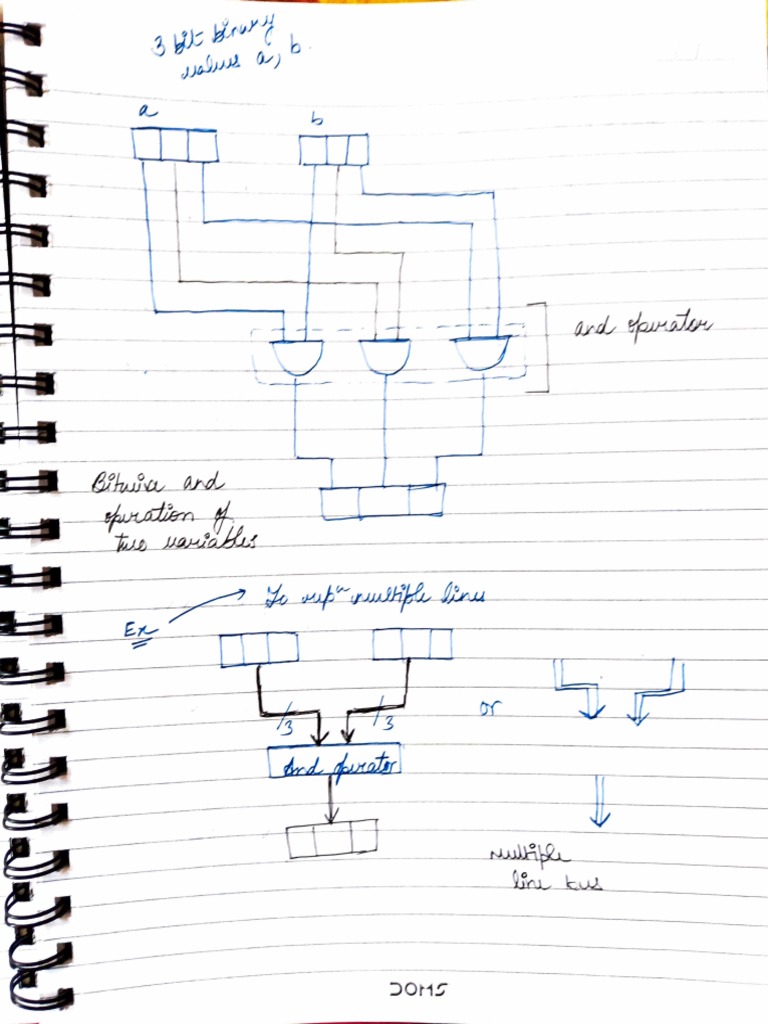 3 bit binary
values a, b.
a
b
and operator
Bitwise and
operation of
two variables
Ex
To repⁿ multiple lines
3
3
or
And operator
multiple
line bus
DOMS